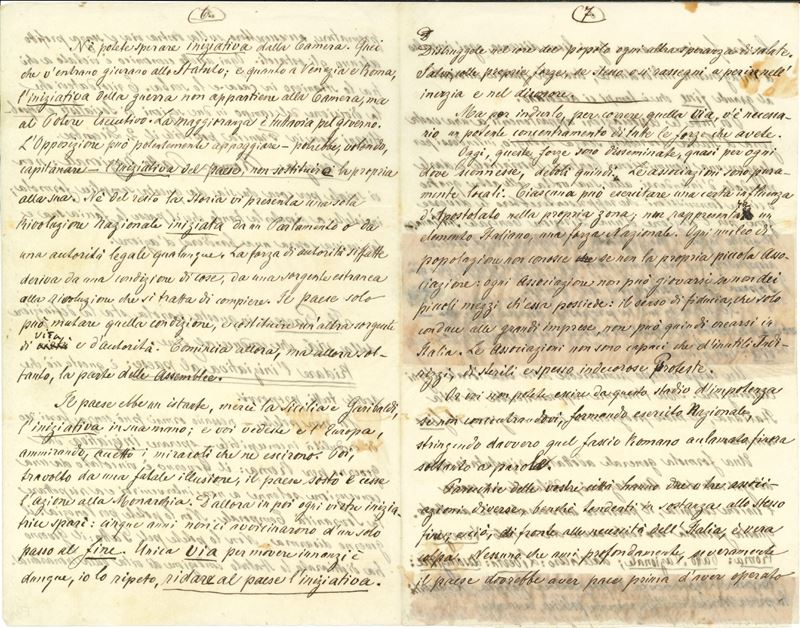 6.
Nè potete sperare iniziativa dalla Camera. Quei
che v'entrano giurano allo Statuto; e quanto a Venezia e Roma,
l'iniziativa della guerra non appartiene alla Camera, ma
al Potere Esecutivo. La maggioranza è tuttavia pel governo.
L'Opposizione può potentemente appoggiare – potrebbe, volendo,
capitanare – l'iniziativa del paese, non sostituire la propria
alla sua. Nè del resto la Storia vi presenta una sola
Rivoluzione Nazionale iniziata da un Parlamento o da
una autorità legale qualunque. La forza di autorità siffatte
deriva da una condizione di cose, da una sorgente estranea
alla Rivoluzione che si tratta di compiere. Il paese solo
può mutare quella condizione, e costituire un'altra sorgente
di vita e d'autorità. Comincia allora, ma allora sol-
tanto, la parte delle Assemblee.
Il paese ebbe un istante, mercè la Sicilia e Garibaldi,
l'iniziativa in sua mano; e voi vedeste e l'Europa,
ammirando, i miracoli che ne escirono. Poi,
travolto da una fatale illusione, il paese sostò e cesse
l'azione alla Monarchia. D'allora in poi ogni virtù inizia-
trice sparì: cinque anni non ci avvicinarono d'un solo
passo al fine. Unica via per movere innanzi è
dunque, io lo ripeto, ridare al paese l'iniziativa.
7.
Distruggete nel core del popolo ogni altra speranza di salute.
Salvi, colle proprie forze, se stesso o si rassegni a perire nell'
inerzia e nel disonore.
Ma per indurlo, per correre quella via, v'è necessa-
rio un potente concentramento di tutte le forze che avete.
Oggi, queste forze sono disseminate, quasi per ogni
dove sconnesse, deboli quindi. Le associazioni sono pura-
mente locali. Ciascuna può esercitare una certa influenza
d'Apostolato nella propria zona; non rappresenta un
elemento Italiano, una forza Nazionale. Ogni nucleo di
popolazione non conosce se non la propria piccola Asso-
ciazione: ogni Associazione non può giovarsi se non dei
piccoli mezzi ch'essa possiede: il senso di fiducia, che solo
conduce alle grandi imprese, non può quindi crearsi in
Italia. Le Associazioni non sono capaci che d'inutili Indi-
rizzi, di sterili e spesso indecorose Proteste.
Or voi non potete escire da questo stadio d'impotenza
se non concentrandovi, formando esercito Nazionale,
stringendo davvero quel fascio Romano acclamato finora
soltanto a parole.
Parecchie delle vostre città hanno due o tre associ-
azioni diverse, benchè tendenti in sostanza allo stesso
fine; e ciò, di fronte alle necessità dell'Italia, è vera
colpa. Nessuno che ami profondamente, severamente
il paese dovrebbe aver pace prima d'aver operato